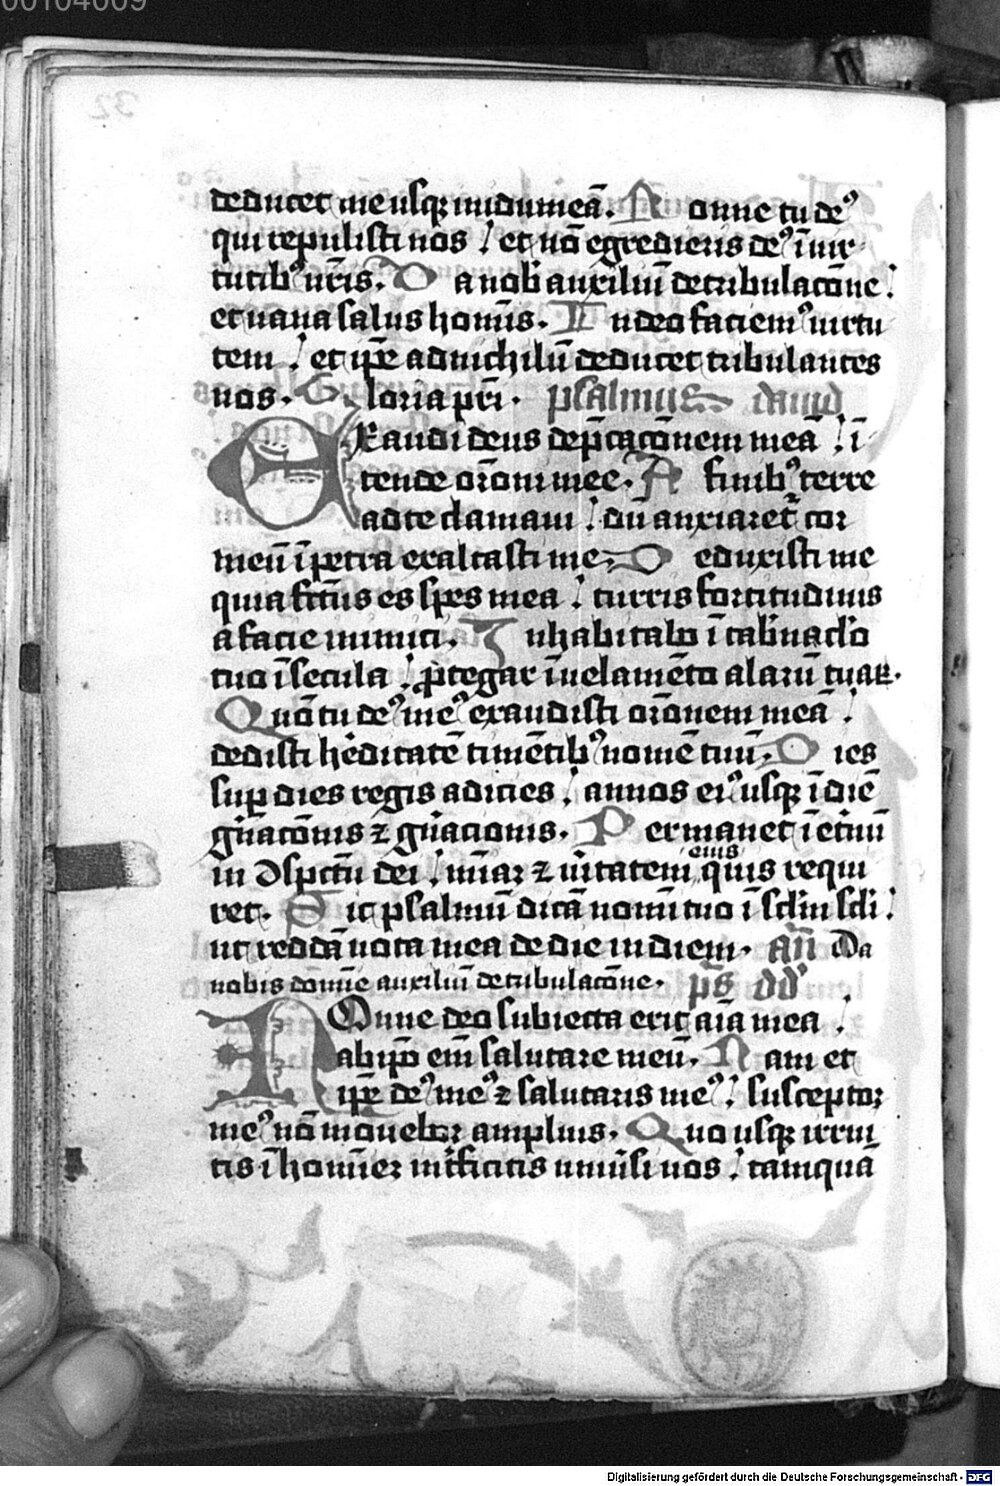 00104009
32
deducet me usq; in idumeā. Nonne tu de⁹
qui repulisti nos / et nō egredieris de⁹ ī vir-
tutib⁹ nr̄is. Da nob̄ auxiliū de tribulacōne /
et vana salus homīs. In deo faciem⁹ virtu
tem / et ip̄e ad nichilū deducet tribulantes
nos. Gloria pr̄i. psalmus david
Exaudi deus dep̄cacōnem meā / ī-
tende orōni mee. A finib⁹ terre
ad te clamavi / dū anxiaret̄ cor
meū ī petra exaltasti me. Deduxisti me
quia fc̄tus es spes mea / turris fortitudinis
a facie inimici. Inhabitabo ī tab̄naclo
tuo ī secula / ꝓtegar ī velamēto alarū tuaꝝ.
Quō tu de⁹ me⁹ exaudisti orōnem meā /
dedisti hēditatē timētib⁹ nomē tuū. Dies
suꝑ dies regis adicies / annos ei⁹ usq; ī diē
gn̄acōnis ⁊ gn̄acionis. Permanet ī et̄nū
in ↄspc̄tu dei / mīaꝫ ⁊ v̄itatem eius quis requi
ret. Sic psalmū dicā nomī tuo ī sclm̄ scli /
ut reddā vota mea de die in diem. an̄ Da
nobis domīe auxiliū de tribulacōne. ps̄ dd̄
Nonne deo subiecta erit aīa mea /
ab ip̄o em̄ salutare meū. Nam et
ip̄e de⁹ me⁹ ⁊ salutaris me⁹ / susceptor
me⁹ nō movebor amplius. Quo usq; irrui
tis ī homīeꝫ int̄ficitis univ̄si vos / tamquā
Digitalisierung gefördert durch die Deutsche Forschungsgemeinschaft - DFG